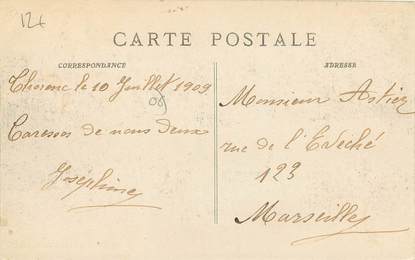 12€
CARTE POSTALE
CORRESPONDANCE
Thorenc le 10 Juillet 1909
08
Caresses de nous deux
Joséphine
ADRESSE
Monsieur Astier
rue de l'Evêché
123
Marseille